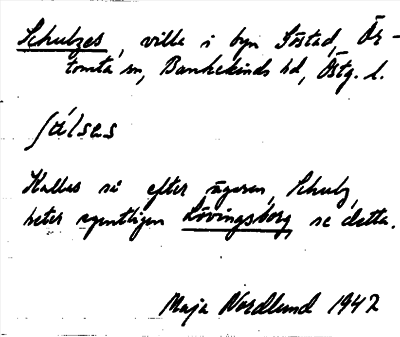 Schultzes, villa i byn Söstad, Ör-
tomta sn, Bankekinds hd, Östg. l.
Kallas så efter ägaren, Schultz,
heter egentligen Lövingsborg, se detta.
Maja Nordlund 1942